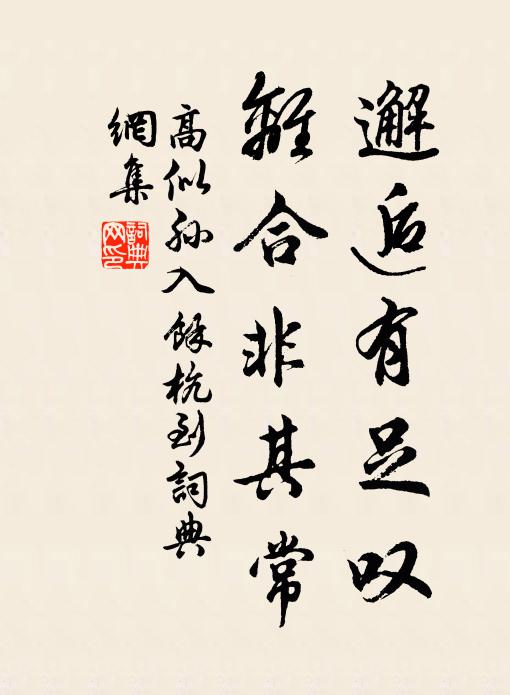 邂逅有足叹
離合非其常
高似孙入餘杭到詞典
網集
詞典
网印